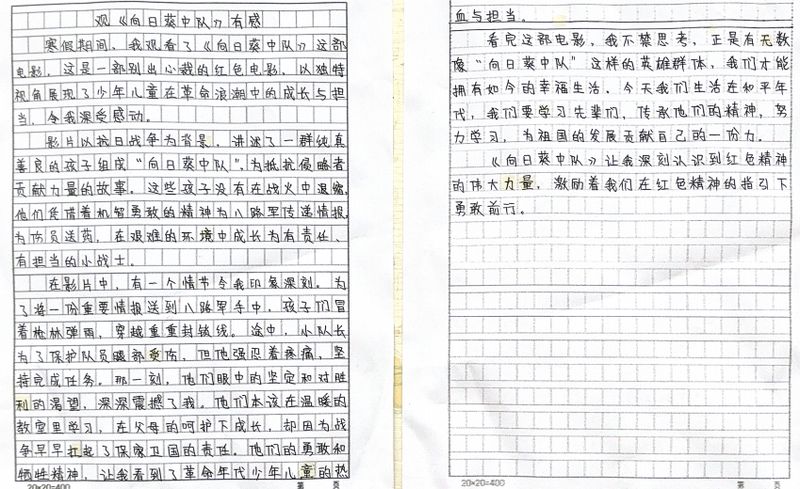 观《向日葵中队》有感
寒假期间，我观看了《向日葵中队》这部
电影，这是一部别出心裁的红色电影，以独特
视角展现了少年儿童在革命浪潮中的成长与担
当，令我深受感动。
影片以抗日战争为背景，讲述了一群纯真
善良的孩子组成“向日葵中队”，为抵抗侵略者
贡献力量的故事。这些孩子没有在战火中退缩，
他们凭借着机智勇敢的精神为八路军传递情报，
为伤员送药，在艰难的环境中成长为有责任、
有担当的小战士。
在影片中，有一个情节令我印象深刻。为
了将一份重要情报送到八路军手中，孩子们冒
着枪林弹雨，穿越重重封锁线。途中，小队长
为了保护队员腿部受伤，但他强忍着疼痛，坚
持完成任务。那一刻，他们眼中的坚定和对胜
利的渴望，深深震撼了我。他们本该在温暖的
教室里学习，在父母的呵护下成长，却因为战
争早早扛起了保家卫国的责任。他们的勇敢和
牺牲精神，让我看到了革命年代少年儿童的热
20×20=400 第 页
血与担当。
看完这部电影，我不禁思考，正是有无数
像“向日葵中队”这样的英雄群体，我们才能
拥有如今的幸福生活。今天我们生活在和平年
代，我们要学习先辈们，传承他们的精神，努
力学习，为祖国的发展贡献自己的一份力。
《向日葵中队》让我深刻认识到红色精神
的伟大力量，激励着我们在红色精神的指引下
勇敢前行。
20×20=400 第 页